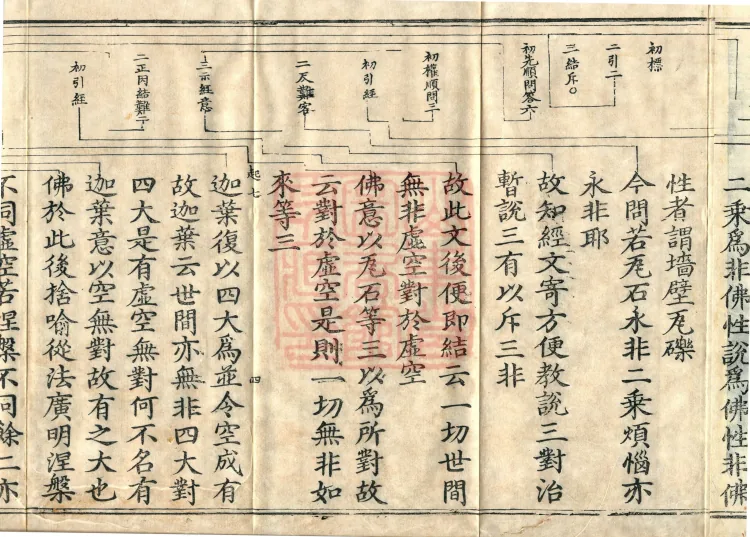 初標
二引二
三結斥○
初先順問答六
初權順問二
初引經
二反難客
三示經意
二正因結難二
初引經
二乘爲非佛性說爲佛性非佛
性者謂墻壁瓦礫
今問若瓦石永非二乘煩惱亦
永非耶
故知經文寄方便教說三對治
暫說三有以斥三非
故此文後便即結云一切世間
無非虛空對於虛空
佛意以瓦石等三以爲所對故
云對於虛空是則一切無非如
來等三
起七
四
迦葉復以四大爲並令空成有
故迦葉云世間亦無非四大對
四大是有虛空無對何不名有
迦葉意以空無對故有之大也
佛於此後捨喻從法廣明涅槃
不同虛空若涅槃不同餘二亦